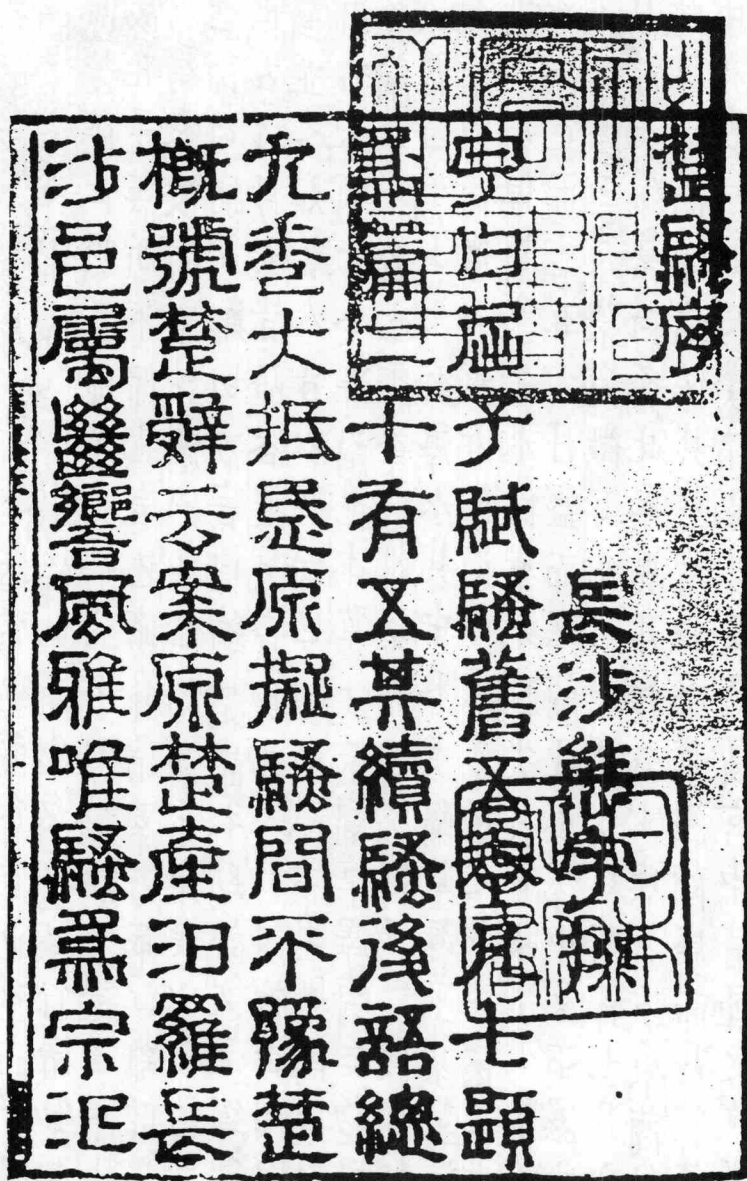 楚騷序
長沙熊宇撰
宇曰屈子賦騷舊五卷凡七題
爲篇二十有五其續騷後語總
九卷大抵昰原擬騷間不豫楚
概號楚辭云案原楚產汨羅長
沙邑屬繼響風雅唯騷爲宗氾